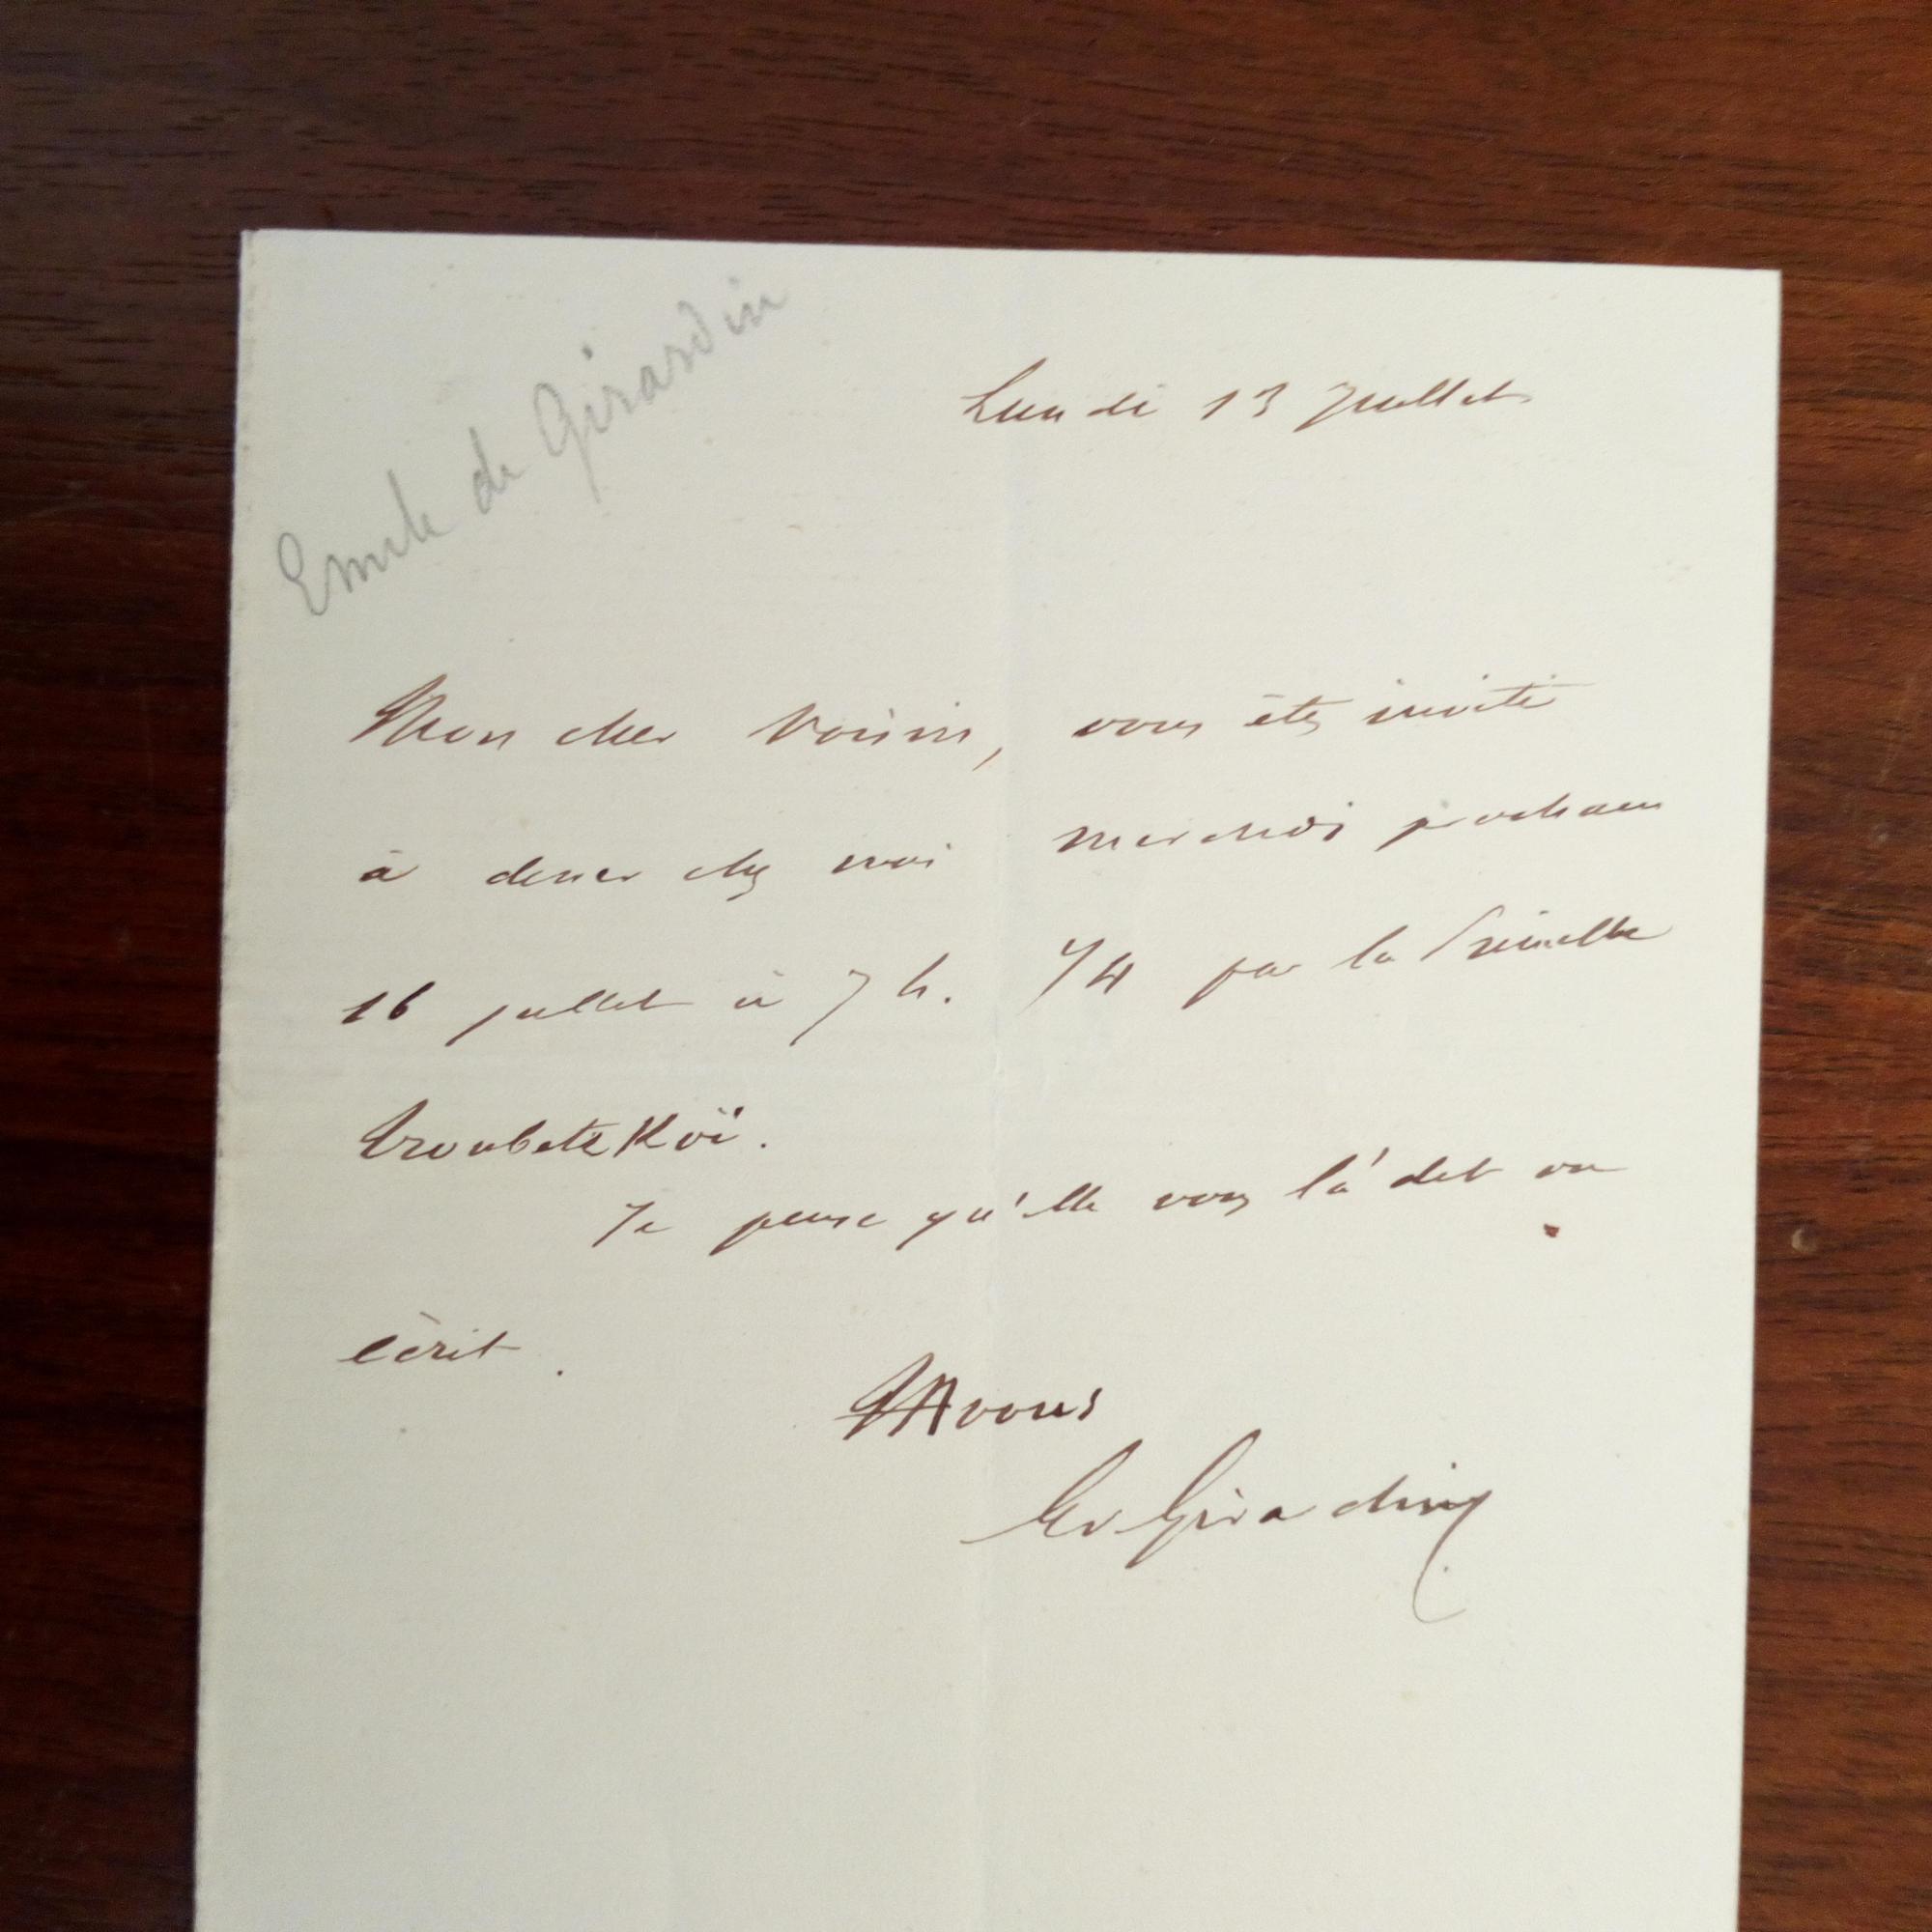 Emile de Girardin
Lundi 13 Juillet
Mon cher Voisin, vous êtes invité
à diner chez moi mercredi prochain
16 juillet à 7 h. 1/4 par la Princesse
Troubetzkoï.
Je pense qu'elle vous l'a dit ou
écrit.
A vous
E de Girardin